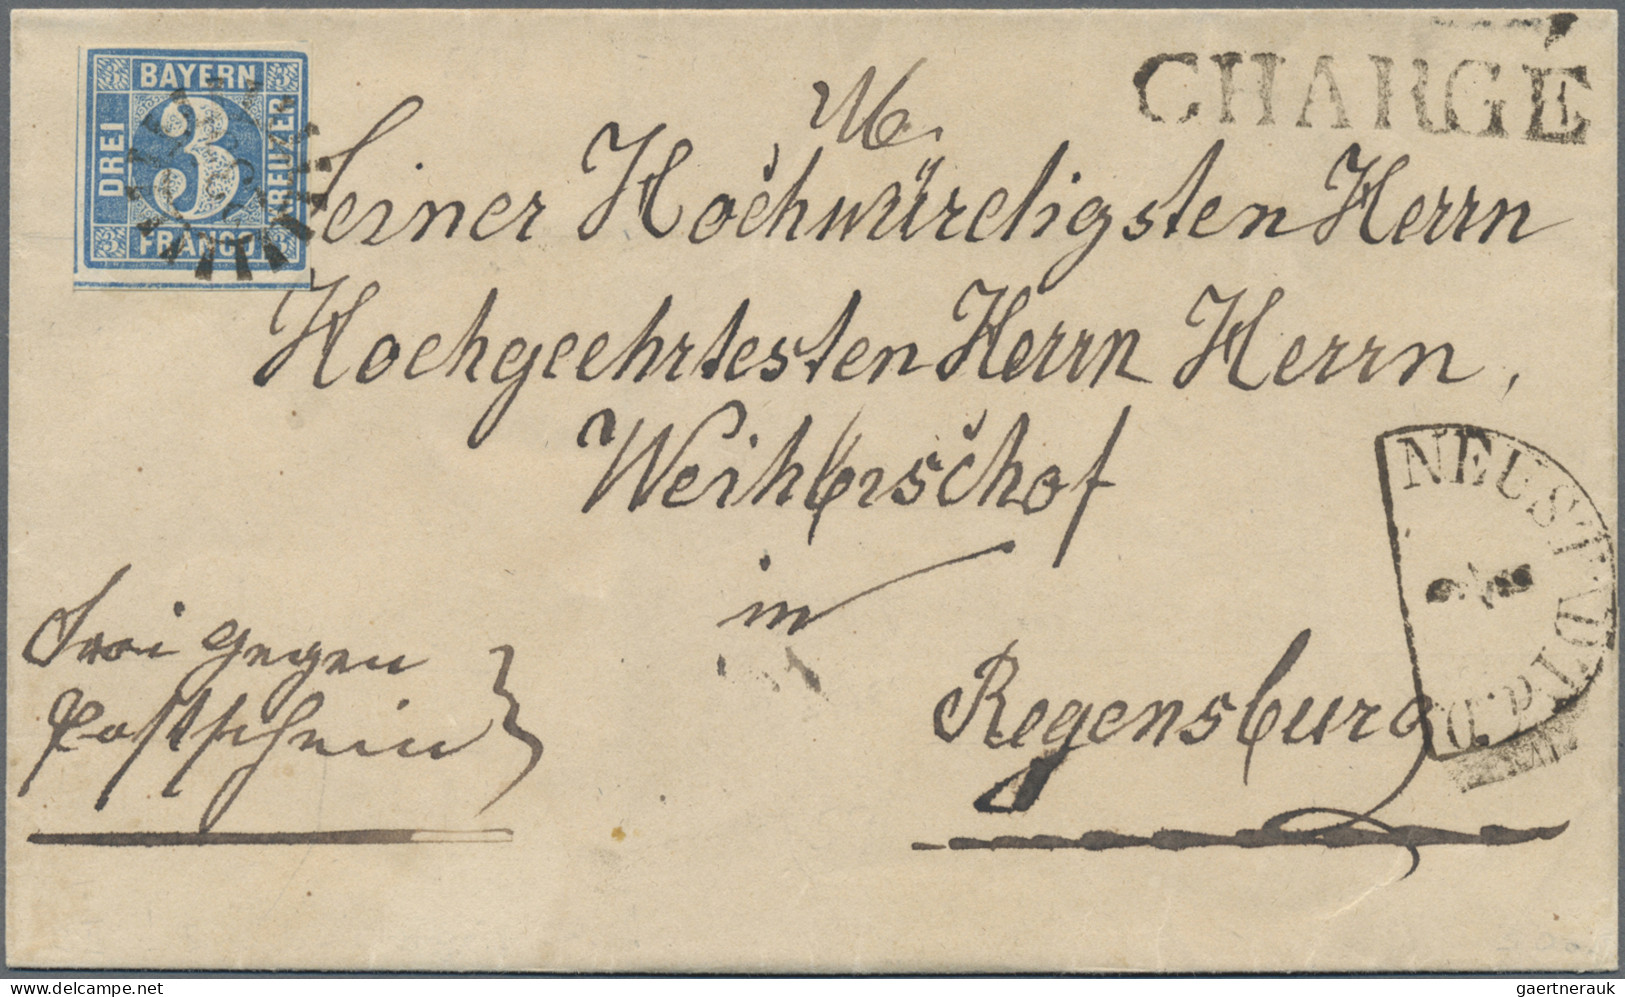 BAYERN
DREI
3
KREUZER
FRANCO
CHARGÉ
Seiner Hochwürdigsten Herrn
Hochgeehrtesten Herrn Herrn,
Weihbischof
in
Regensburg
frei gegen
Postschein
NEUSTADT a/D.
gaertnerauk